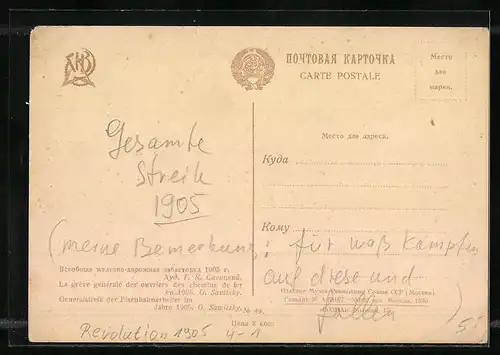 ПОЧТОВАЯ КАРТОЧКА
CARTE POSTALE
Место
для
марки.
Место для адреса.
Gesamte
Streik
1905
Куда
Кому
(meine Bemerkung: für waß kämpfen
auf diese und
fallen)
Всеобщая железно-дорожная забастовка 1905 г.
Худ. Г. К. Савицкий.
La grève générale des ouvriers des chemins de fer
en 1905. G. Savitsky.
Generalstreik der Eisenbahnarbeiter im
Jahre 1905. G. Savitsky.
№ 49.
Цена 8 коп.
Издание Музея Революции Союза ССР (Москва)
Revolution 1905 4-1
5.-